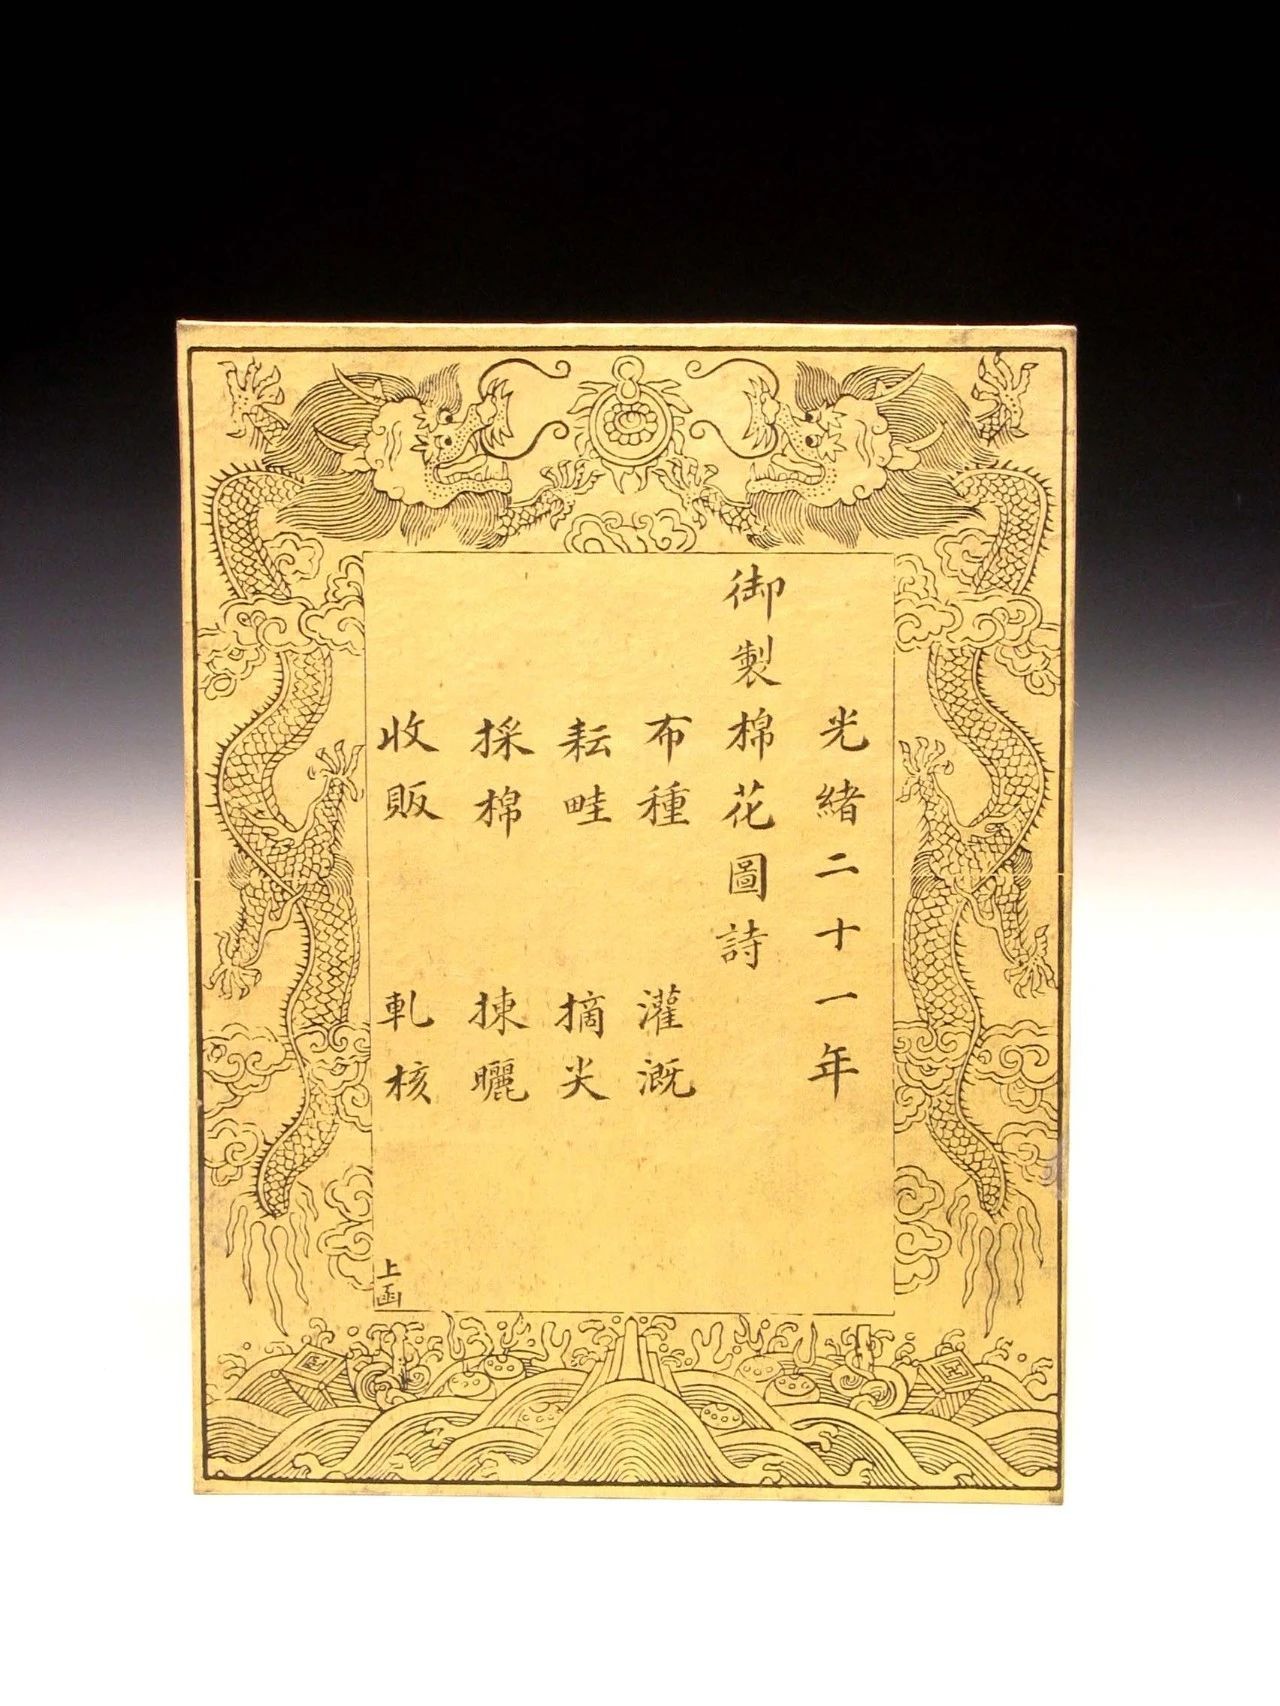 光緒二十一年
御製棉花圖詩
布種 灌溉
耘畦 摘尖
採棉 揀曬
收販 軋核
上函